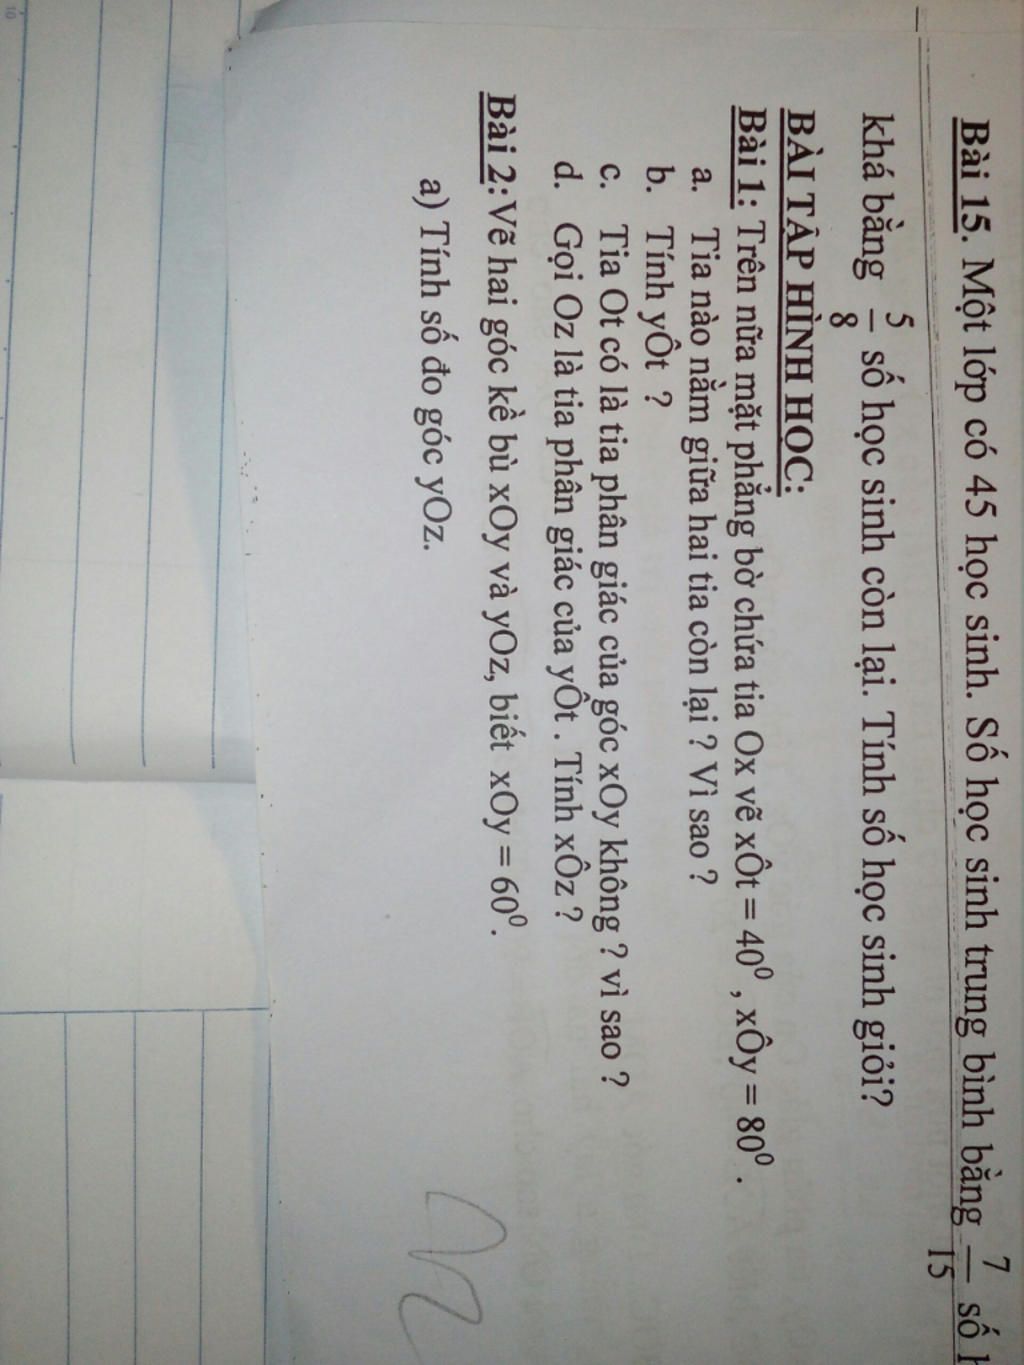 Bài 15. Một lớp có 45 học sinh. Số học sinh trung bình bằng 7/15 số
khá bằng 5/8 số học sinh còn lại. Tính số học sinh giỏi?
BÀI TẬP HÌNH HỌC:
Bài 1: Trên nữa mặt phẳng bờ chứa tia Ox vẽ xÔt = 40⁰ , xÔy = 80⁰ .
a. Tia nào nằm giữa hai tia còn lại ? Vì sao ?
b. Tính yÔt ?
c. Tia Ot có là tia phân giác của góc xOy không ? vì sao ?
d. Gọi Oz là tia phân giác của yÔt . Tính xÔz ?
Bài 2: Vẽ hai góc kề bù xOy và yOz, biết xOy = 60⁰ .
a) Tính số đo góc yOz.